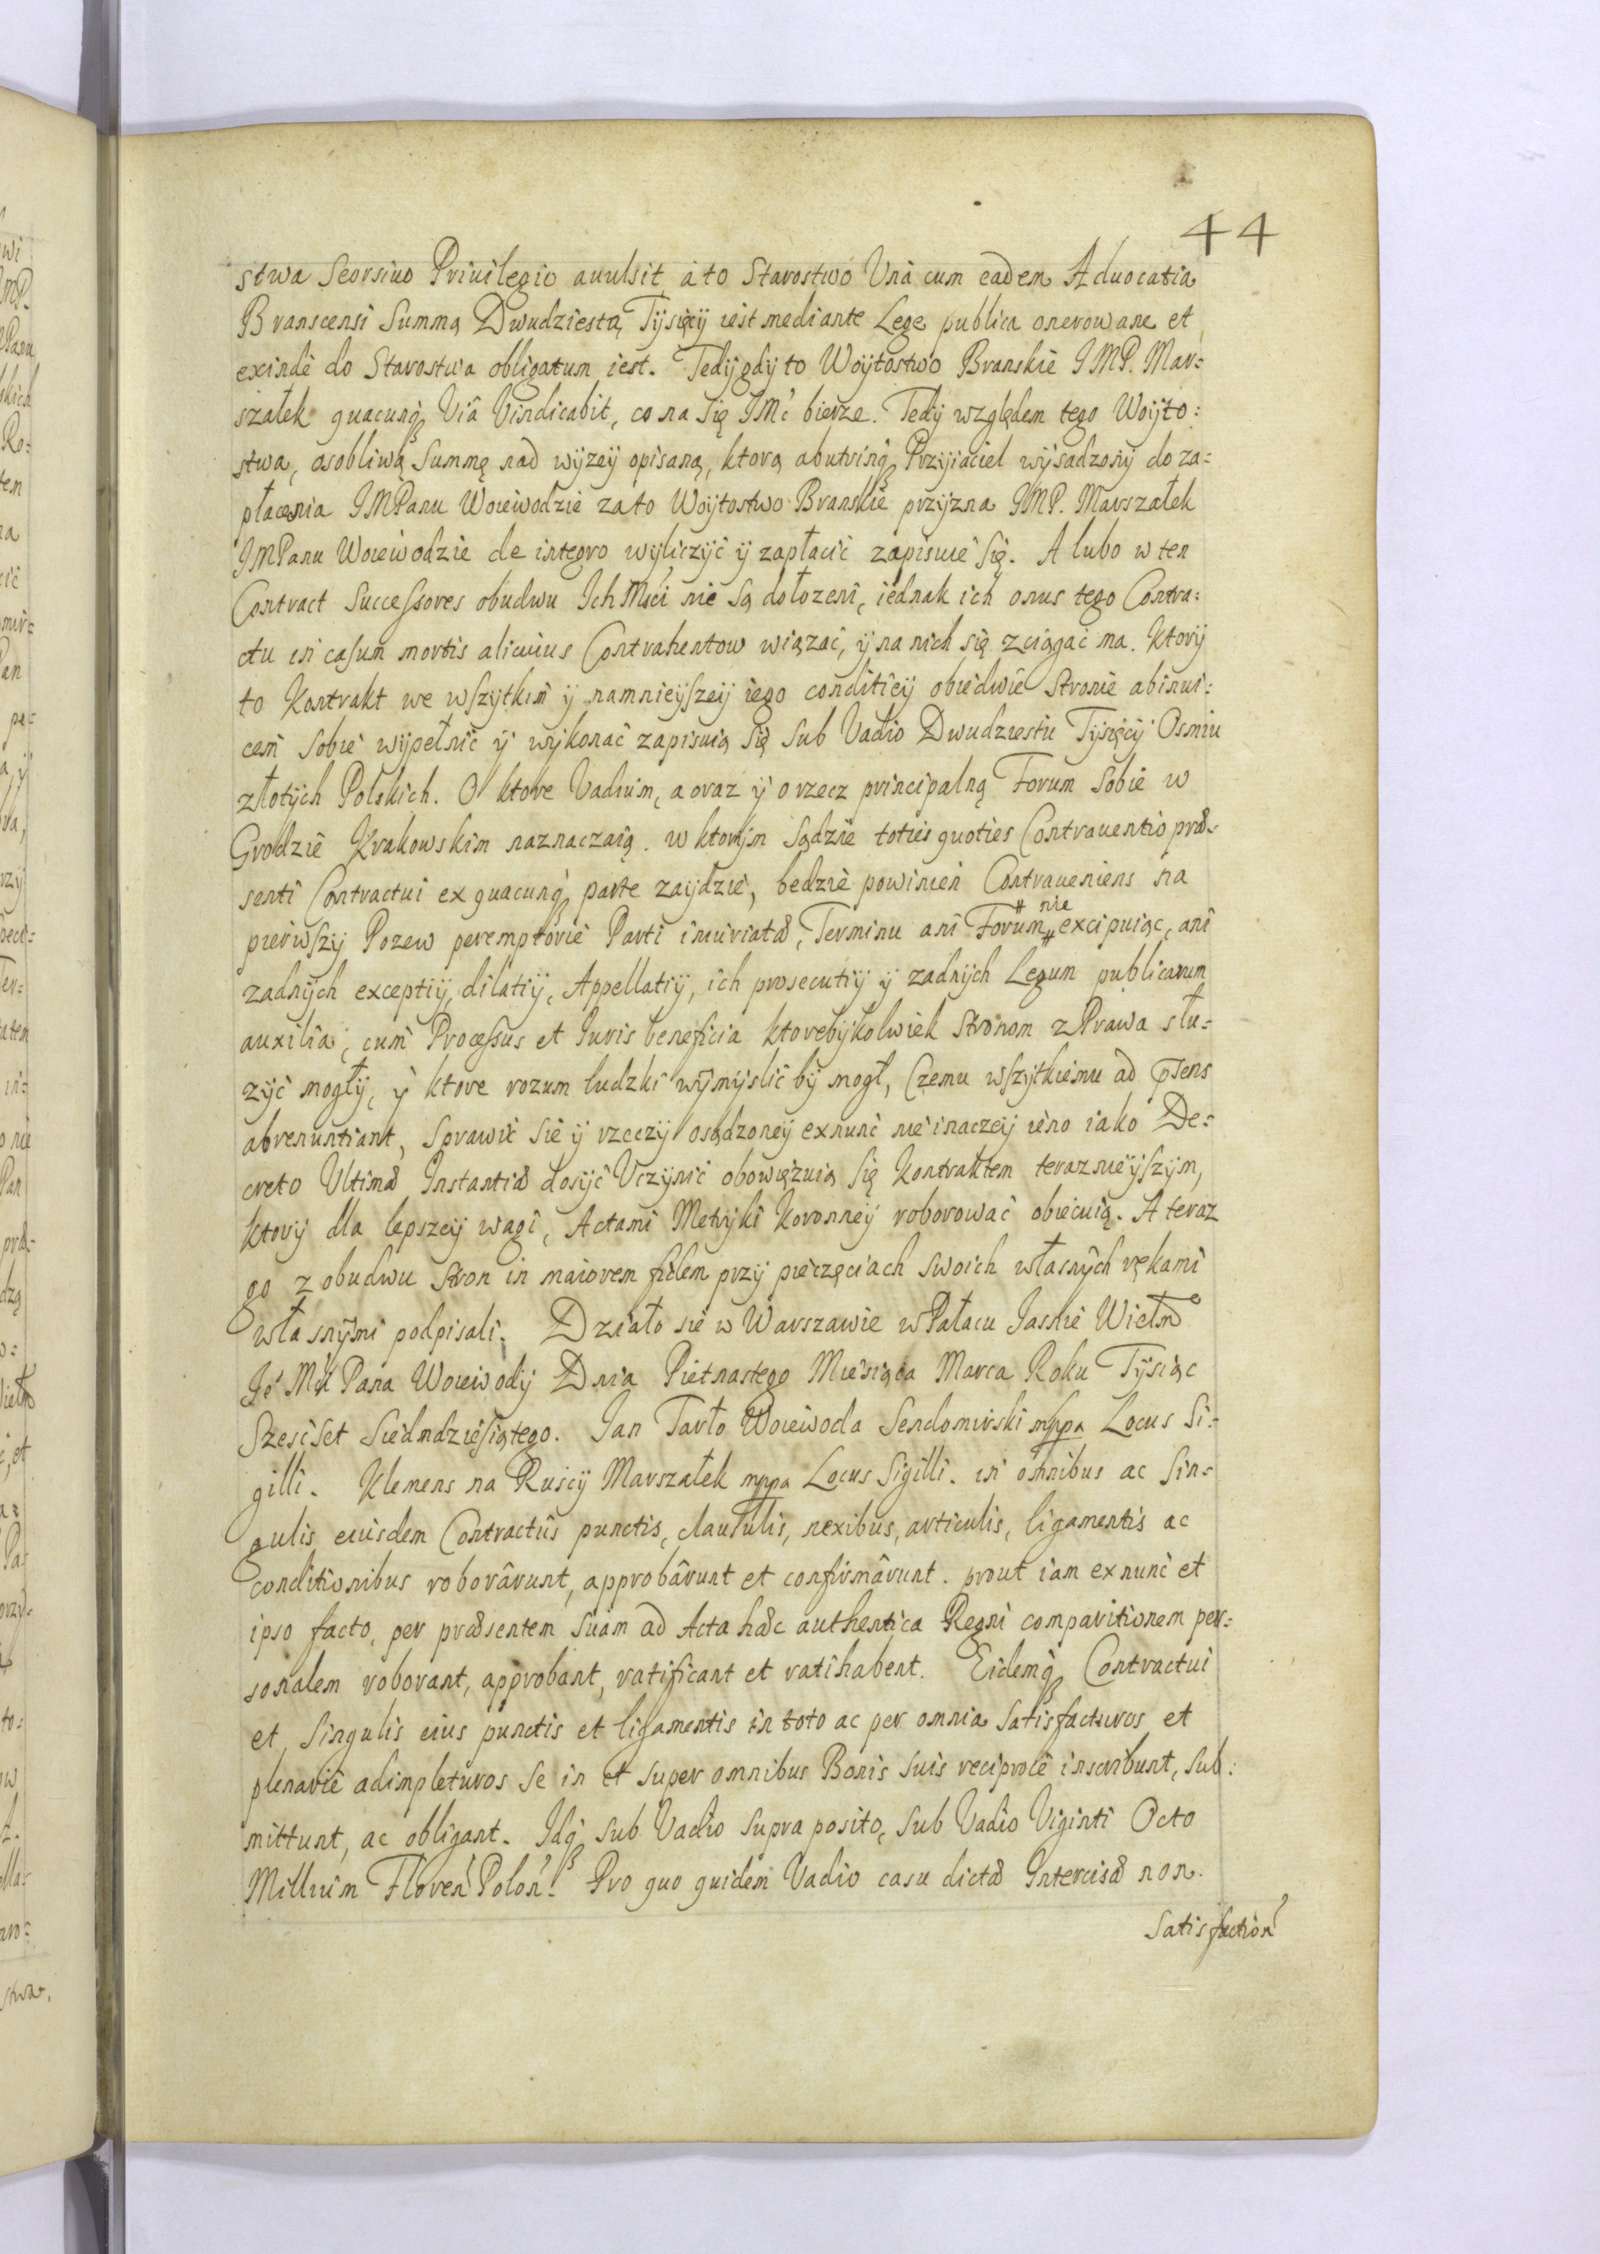 44
stwa Seorsiuo Priuilegio auulsit, à to Starostwo Unà cum eadem Aduocatia
Branscensi Summą Dwudziestą Tysięcy iest mediante Lege publica onerowane et
exindè do Starostwa obligatum iest. Tedy gdy to Woytostwo Branskie IMP. Mar=
szałek quacunq́ Viâ Vindicabit, co na się IMć bierze. Tedy względem tego Woyto=
stwa, osobliwą Summę nad wyzey opisaną, ktorą abutrinq́ Przyiaciel wysadzony do za=
płacenia IMPanu Woiewodzie za to Woytostwo Branskie przyzna IMP. Marszałek
IMPanu Woiewodzie de integro wyliczyć y zapłacić zapisuie się. A lubo w ten
Contract Successores obudwu Ich Mści nie są dołozeni, iednak ich onus tego Contra=
ctu in casum mortis alicuius Contrahentow wiązać, y na nich się zciągać ma. Ktory
to Kontrakt we wszytkim y namnieyszey iego conditiey obiedwie Stronie abinui=
cem sobie wypełnić y wykonać zapisuią się sub Vadio Dwudziestu Tysięcy Osmiu
złotych Polskich. O ktore Vadium, a oraz y o rzecz principalną Forum sobie w
Grodzie Krakowskim naznaczaią. w ktorym Sądzie toties quoties Contrauentio præ=
senti Contractui ex quacunq́ parte zaydzie, bedzie powinien Contraueniens na
pierwszy Pozew peremptorie Parti iniuriatæ, Terminu ani Forum # nie # excipuiąc, ani
zadnych exceptiy, dilatiy, Appellatiy, ich prosecutiy y zadnych Legum publicarum
auxilia, cum Processus et Iuris beneficia ktorebykolwiek Stronom z Prawa słu=
zyć mogły, y ktore rozum ludzki wymyslić by mogł, Czemu wszytkiemu ad p̄sens
abrenuntiant, sprawić sie y rzeczy osądzoney exnunc nie inaczey ieno iako De=
creto Ultimæ Instantiæ dosyć Uczynić obowięzuią się Kontraktem teraznieyszym,
ktory dla lepszey wagi, Actami Metryki Koronney roborować obiecuią. A teraz
go z obudwu Stron in maiorem fidem przy pieczęciach swoich własnych rękami
własnymi podpisali. Działo sie w Warszawie w Pałacu Jasnie Wielmº
Jeº Mści Pana Woiewody Dnia Pietnastego Miesiąca Marca Roku Tysiąc
Szescset Siedmdziesiątego. Jan Tarło Woiewoda Sendomirski mppa Locus Si=
gilli. Klemens na Ruscy Marszałek mppa Locus Sigilli. in omnibus ac sin=
gulis eiusdem Contractûs punctis, clausulis, nexibus, articulis, ligamentis ac
conditionibus roborârunt, approbârunt et confirmârunt. prout iam exnunc et
ipso facto, per præsentem suam ad Acta hæc authentica Regni comparitionem per=
sonalem roborant, approbant, ratificant et ratihabent. Eidemq́ Contractui
et singulis eius punctis et ligamentis in toto ac per omnia satisfacturos et
plenariè adimpleturos se in et super omnibus Bonis suis reciprocè inscribunt, sub=
mittunt, ac obligant. Idq́ sub Vadio supra posito, sub Vadio Viginti Octo
Millium Floren̄ Polon̄. Pro quo quidem Vadio casu dictæ Intercisæ non
satisfaction̄